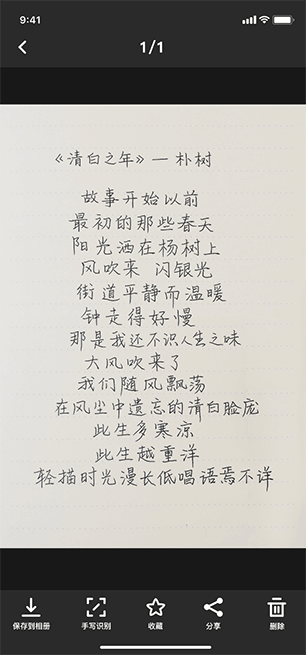 9:41
1/1
《清白之年》—朴树
故事开始以前
最初的那些春天
阳光洒在杨树上
风吹来 闪银光
街道平静而温暖
钟走得好慢
那是我还不识人生之味
大风吹来了
我们随风飘荡
在风尘中遗忘的清白脸庞
此生多寒凉
此生越重洋
轻描时光漫长低唱语焉不详
保存到相册 手写识别 收藏 分享 删除